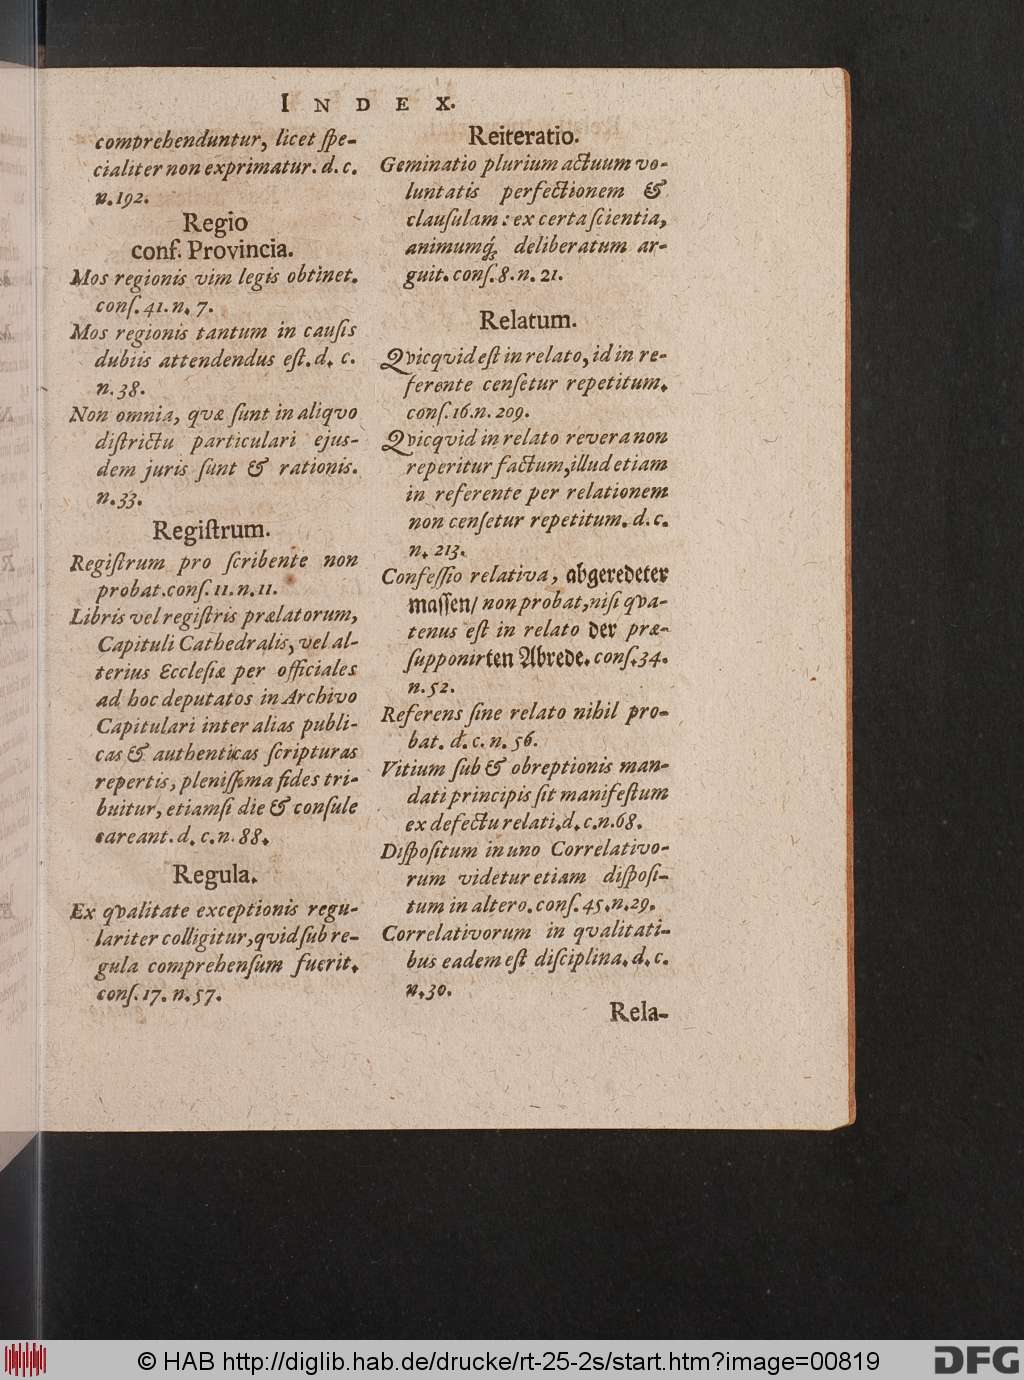 INDEX.
comprehenduntur, licet ſpe-
cialiter non exprimatur. d. c.
n. 192.
Regio
conf. Provincia.
Mos regionis vim legis obtinet.
conſ. 41. n. 7.
Mos regionis tantum in cauſis
dubiis attendendus eſt. d. c.
n. 38.
Non omnia, qvæ ſunt in aliqvo
diſtrictu particulari ejus-
dem juris ſunt & rationis.
n. 33.
Regiſtrum.
Regiſtrum pro ſcribente non
probat. conſ. 11. n. 11.
Libris vel regiſtris prælatorum,
Capituli Cathedralis, vel al-
terius Eccleſiæ per officiales
ad hoc deputatos in Archivo
Capitulari inter alias publi-
cas & authenticas ſcripturas
repertis, pleniſſima fides tri-
buitur, etiamſi die & conſule
careant. d. c. n. 88.
Regula.
Ex qvalitate exceptionis regu-
lariter colligitur, qvid ſub re-
gula comprehenſum fuerit.
conſ. 17. n. 57.
Reiteratio.
Geminatio plurium actuum vo-
luntatis perfectionem &
clauſulam: ex certa ſcientia,
animumq́; deliberatum ar-
guit. conſ. 8. n. 21.
Relatum.
Qvicqvid eſt in relato, id in re-
ferente cenſetur repetitum.
conſ. 16. n. 209.
Qvicqvid in relato revera non
reperitur factum, illud etiam
in referente per relationem
non cenſetur repetitum. d. c.
n. 213.
Confeſſio relativa, abgeredeter
maſſen/ non probat, niſi qva-
tenus eſt in relato der præ-
ſupponirten Abrede. conſ. 34.
n. 52.
Referens ſine relato nihil pro-
bat. d. c. n. 56.
Vitium ſub & obreptionis man-
dati principis ſit manifeſtum
ex defectu relati. d. c. n. 68.
Diſpoſitum in uno Correlativo-
rum videtur etiam diſpoſi-
tum in altero. conſ. 45. n. 29.
Correlativorum in qvalitati-
bus eadem eſt diſciplina. d. c.
n. 30.
Rela-
© HAB http://diglib.hab.de/drucke/rt-25-2s/start.htm?image=00819
DFG